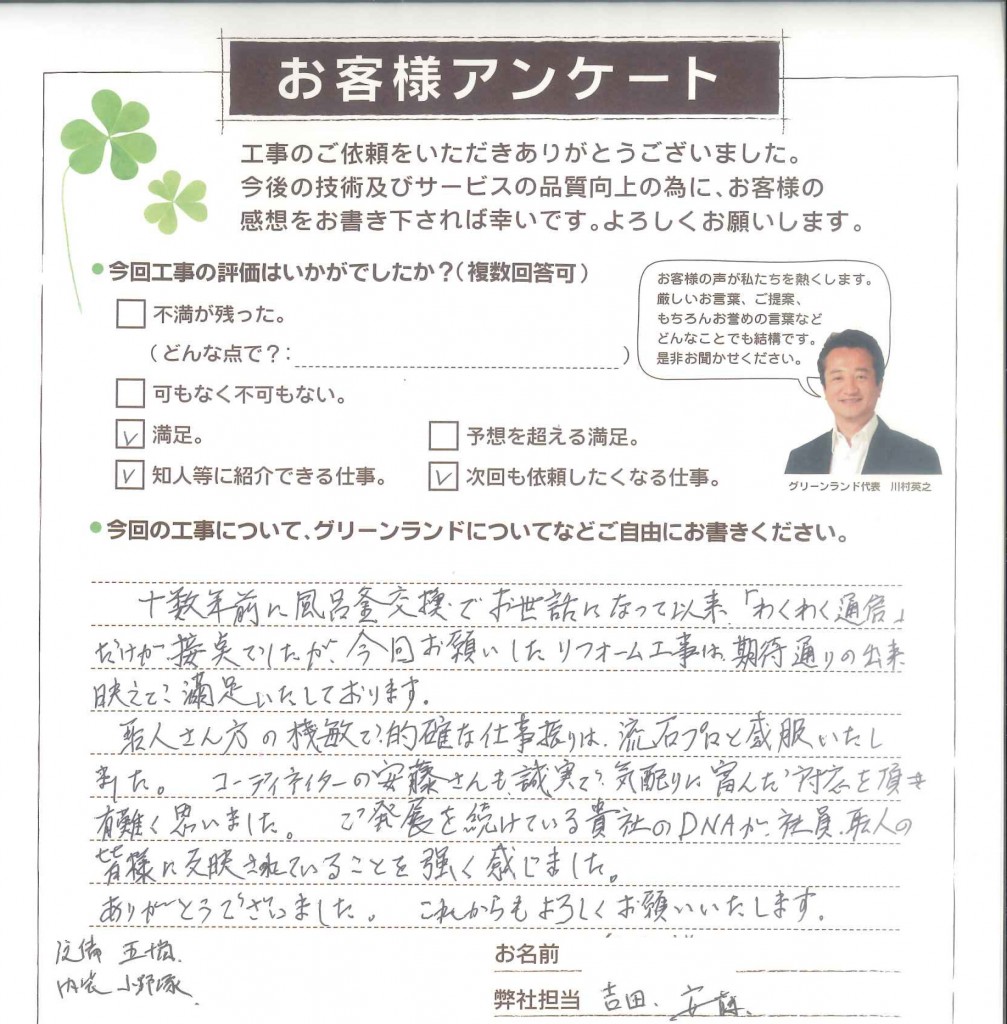 お客様アンケート
工事のご依頼をいただきありがとうございました。
今後の技術及びサービスの品質向上の為に、お客様の
感想をお書き下されば幸いです。よろしくお願いします。
今回工事の評価はいかがでしたか？(複数回答可)
不満が残った。
(どんな点で？: )
可もなく不可もない。
満足。
予想を超える満足。
知人等に紹介できる仕事。
次回も依頼したくなる仕事。
お客様の声が私たちを熱くします。
厳しいお言葉、ご提案、
もちろんお誉めの言葉など
どんなことでも結構です。
是非お聞かせください。
グリーンランド代表 川村英之
今回の工事について、グリーンランドについてなどご自由にお書きください。
十数年前に風呂釜交換でお世話になって以来「わくわく通信」
だけが接点でしたが、今回お願いしたリフォーム工事は、期待通りの出来
映えで満足いたしております。
職人さん方の機敏で的確な仕事振りは、流石プロと感服いたし
ました。 コーディネイターの安藤さんも、誠実で気配りに富んだ対応を頂き
有難く思いました。 ご発展を続けている貴社のDNAが、社員、職人の
皆様に反映されていることを強く感じました。
ありがとうございました。 これからもよろしくお願いいたします。
設備
内装 小野塚
お名前
弊社担当 吉田、安藤